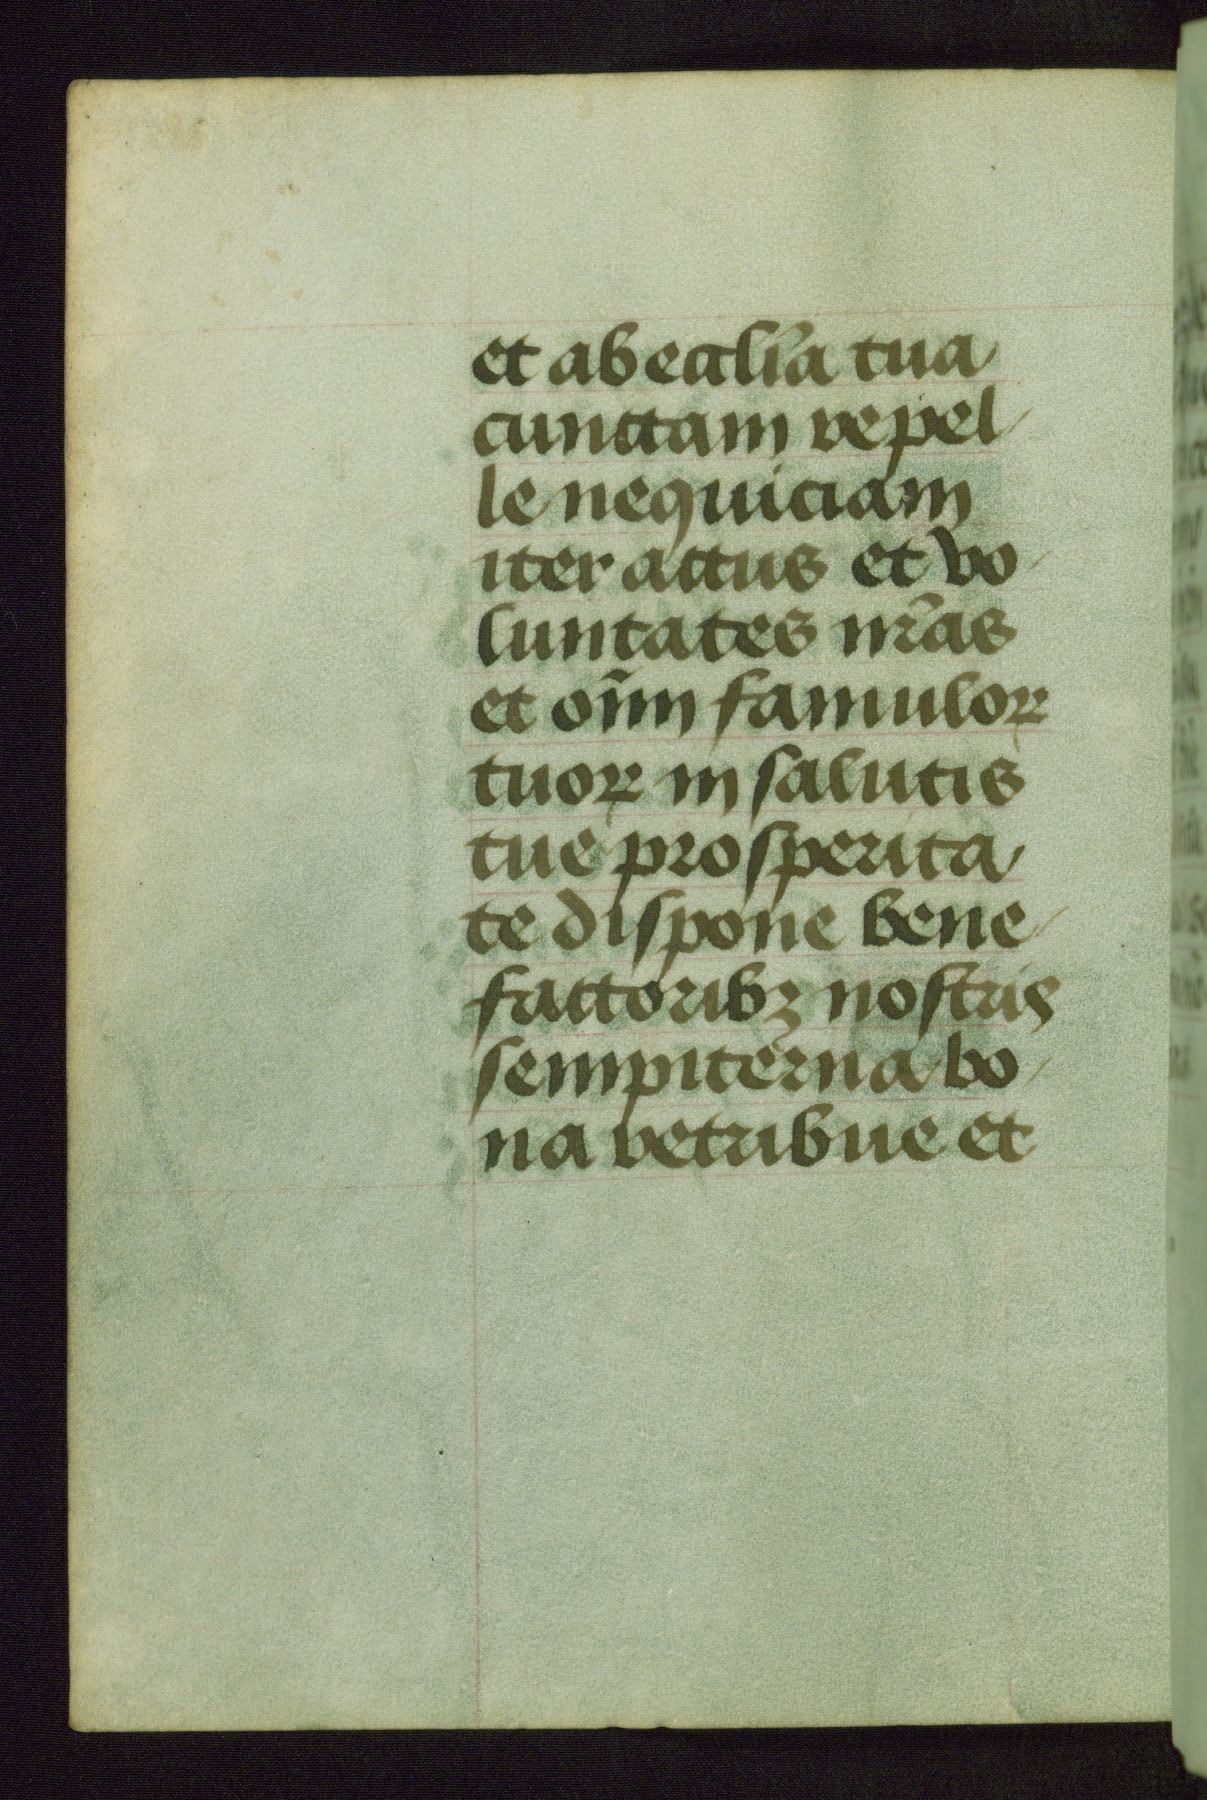 et ab eccl̄ia tua
cunctam repel
le nequiciam
iter actus et vo
luntates nr̄as
et om̄im famuloꝝ
tuoꝝ in salutis
tue prosperita
te dispone bene
factoribꝫ nostris
sempiterna bo
na retribue et